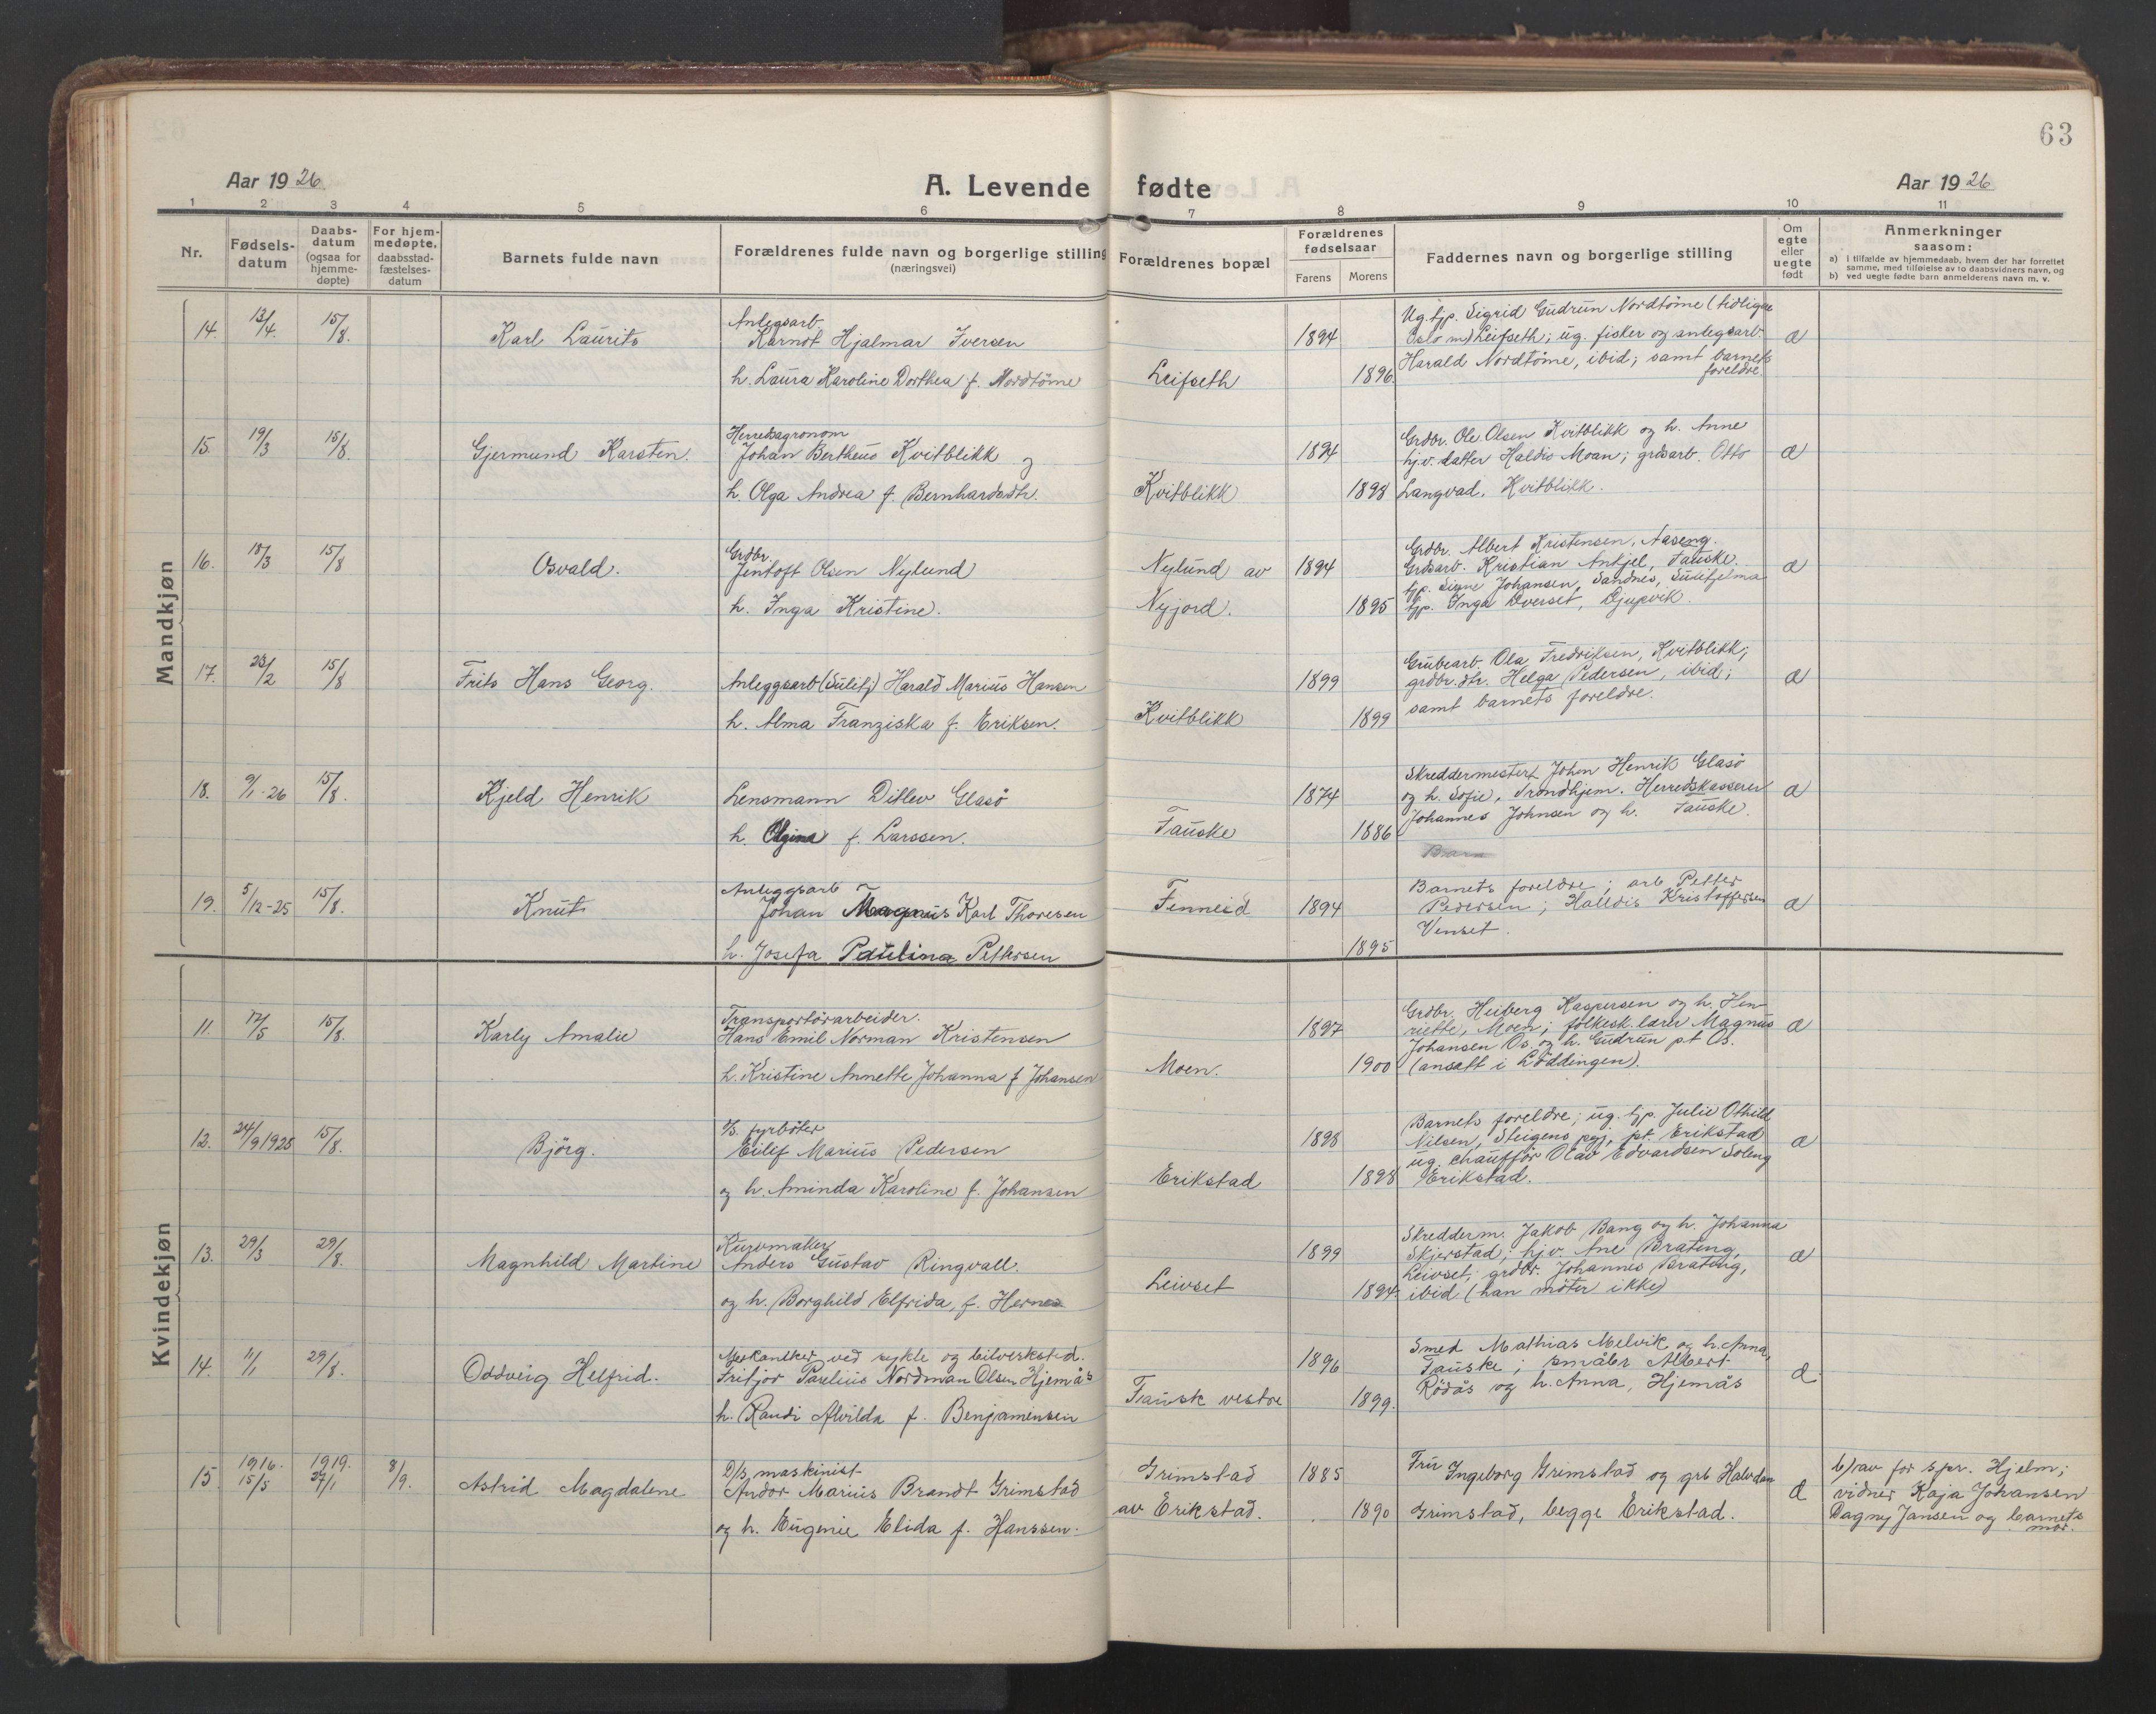 63
Aar 1926.
A. Levende fødte
Aar 1926
1 2 3 4 5 6 7 8 9 10 11
Nr.
Fødsels-
datum
Daabs-
datum
(ogsaa for
hjemme-
døpte)
For hjem-
medøpte,
daabsstad-
fæstelses-
datum
Barnets fulde navn
Forældrenes fulde navn og borgerlige stilling
(næringsvei)
Forældrenes bopæl
Forældrenes
fødselsaar
Farens Morens
Faddernes navn og borgerlige stilling
Om
egte
eller
uegte
født
Anmerkninger
saasom:
a) i tilfælde av hjemmedaab, hvem der har forrettet
samme, med tilføielse av to daabsvidners navn, og
b) ved uegte fødte barn anmelderens navn m. v.
Mandkjøn
14. 13/4. 15/8. Karl Laurits
Anlegsarb.
Karnot Hjalmar Iversen
h. Laura Karoline Dorthea f. Nordtöme
Leifseth
1894
1896.
Ug. tjp. Sigrid Gudrun Nordtöme (tidligere
Oslo m) Leifseth; ug. fisker og anlegsarb.
Harald Nordtöme, ibid; samt barnets
foreldre.
a
15. 19/3 15/8. Gjermund Karsten.
Herredsagronom
Johan Bertheus Kvitblikk og
h. Olga Andrea f. Bernhardsdtr.
Kvitblikk
1894
1898
Grdbr. Ole Olsen Kvitblikk og h. Anne
hj.v. datter Haldis Moan; grdsarb. Otto
Langvad, Kvitblikk.
a
16. 18/3 15/8 Osvald.
Grdbr.
Jentoft Olsen Nylund
h. Inga Kristine.
Nylund av
Nyjord.
1894
1895
Grdbr. Albert Kristensen, Aaseng.
Grdsarb. Kristian Ankjel, Fauske.
tjp. Signe Johansen, Sandnes, Sulitjelma
tjp. Inga Överset, Djupvik.
a
17. 23/2 15/8 Frits Hans Georg.
Anleggsarb (Sulitj) Harald Marius Hansen
h. Alma Franziska f. Eriksen.
Kvitblikk
1899
1899
Grubearb. Ola Fredriksen, Kvitblikk;
grdbr.dtr. Helga Pedersen, ibid;
samt barnets foreldre.
a
18. 9/1-26 15/8. Kjeld Henrik
Lensmann Ditlev Glasö
h. Olgina f. Larssen.
Fauske
1874
1886
Skreddermester Johan Henrik Glasö
og h. Sofie, Trondhjem. Herredskasserer
Johannes Johnsen og h. Fauske.
a
19. 5/12-25 15/8. Knut
Anleggsarb
Johan Magnus Karl Thoresen
h. Josefa Paulina Pettersen
Finneid
1894
1895
Barnets foreldre; arb Petter
Pedersen; Halldis Kristoffersen
Venset.
a
Kvindekjøn
11. 17/5 15/8. Karly Amalie
Transportörarbeider.
Hans Emil Norman Kristensen
h. Kristine Annette Johanna f Johansen
Moen.
1897
1900
Grdbr. Heiberg Kaspersen og h. Hen-
riette, Moen; folkesk.lærer Magnus
Johansen Os. og h. Gudrun pt Os.
(ansatt i Löddingen).
a
12. 24/9 1925 15/8. Björg.
D/S. fyrböter
Eilif Marius Pedersen
og h. Aminda Karoline f. Johansen
Erikstad
1898
1898
Barnets foreldre; ug. tjp. Julie Othild
Nilsen, Steigens pgj, pt. Erikstad
ug. chauffør Olav Edvardsen Soleng
Erikstad.
a
13. 29/3 29/8. Magnhild Martine
Kurvmaker
Anders Gustav Ringvall.
og h. Borghild Elfrida, f. Hernes
Leivset
1899
1894.
Skredderm. Jakob Bang og h. Johanna
Skjerstad; hj.v. Ane Brateng,
Leivset; grdbr. Johannes Brateng,
ibid (han möter ikke)
a
14. 11/1 29/8. Oddveig Helfrid.
Mekaniker ved sykle og bilverksted.
Fritjof Paselius Nordman Olsen Hjemås
h. Randi Alvilda f. Benjaminsen
Fausk vestre
1896
1899.
Smed Mathias Melvik og h. Anna,
Fauske; småbr Albert
Rödås og h. Anna, Hjemås
a
15 1916. 15/5 1919. 27/1 8/9. Astrid Magdalene
D/S maskinist
Andor Marius Brandt Grimstad
og h. Eugenie Elida f. Hanssen.
Grimstad
av Erikstad.
1885
1890
Fru Ingeborg Grimstad og grb Halvdan
Grimstad, begge Erikstad.
a
b) av for spr. Hjelm;
vidner Kaja Johansen
Dagny Jansen og barnets
mor.